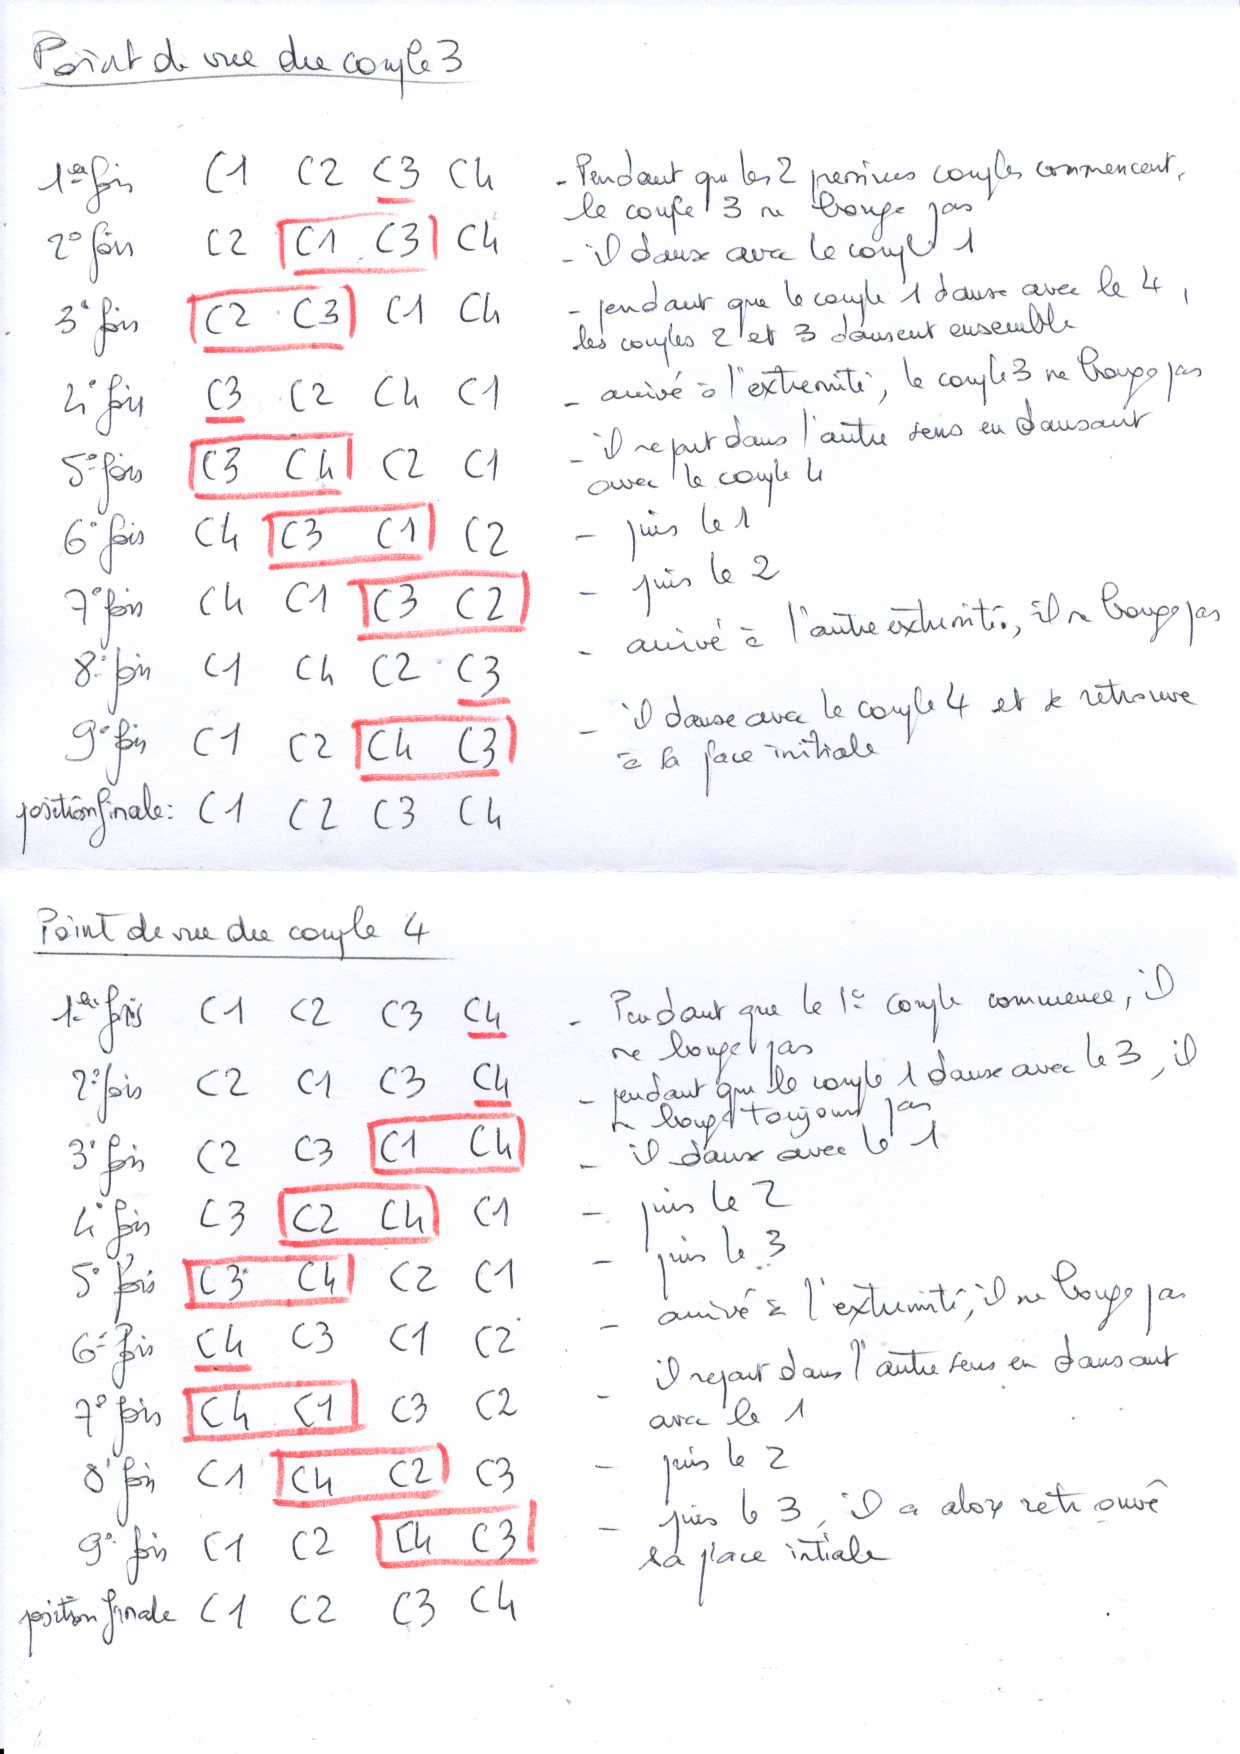 Point de vue du couple 3
1ère fois C1 C2 C3 C4 - Pendant que les 2 premiers couples commencent,
le couple 3 ne bouge pas
2° fois C2 C1 C3 C4 - il danse avec le couple 1
3° fois C2 C3 C1 C4 - pendant que le couple 1 danse avec le 4,
les couples 2 et 3 dansent ensemble
4° fois C3 C2 C4 C1 - arrivé à l'extremité, le couple 3 ne bouge pas
5° fois C3 C4 C2 C1 - il repart dans l'autre sens en dansant
avec le couple 4
6° fois C4 C3 C1 C2 - puis le 1
7° fois C4 C1 C3 C2 - puis le 2
8° fois C1 C4 C2 C3 - arrivé à l'autre extrémité, il ne bouge pas
9° fois C1 C2 C4 C3 - il danse avec le couple 4 et se retrouve
à sa place initiale
position finale: C1 C2 C3 C4
Point de vue du couple 4
1ère fois C1 C2 C3 C4 - Pendant que le 1er couple commence, il
ne bouge pas
2° fois C2 C1 C3 C4 - pendant que le couple 1 danse avec le 3, il
ne bouge toujours pas
3° fois C2 C3 C1 C4 - il danse avec le 1
4° fois C3 C2 C4 C1 - puis le 2
5° fois C3 C4 C2 C1 - puis le 3
6° fois C4 C3 C1 C2 - arrivé à l'extremité, il ne bouge pas
7° fois C4 C1 C3 C2 - il repart dans l'autre sens en dansant
avec le 1
8° fois C1 C4 C2 C3 - puis le 2
9° fois C1 C2 C4 C3 - puis le 3, il a alors retrouvé
sa place intiale
position finale C1 C2 C3 C4